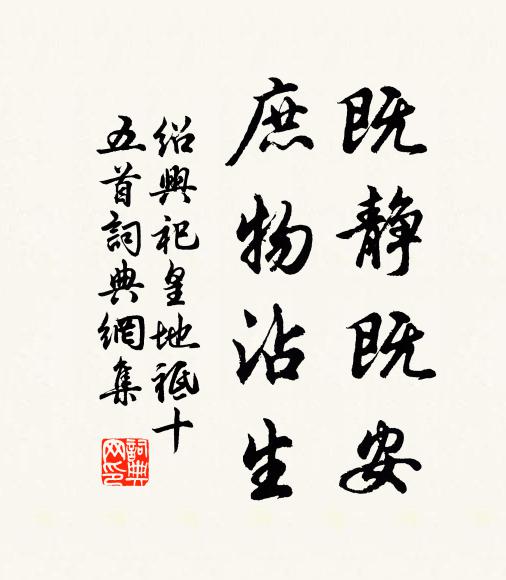 既静既安
庶物沾生
绍興祀皇地祗十
五首詞典網集
詞典网印